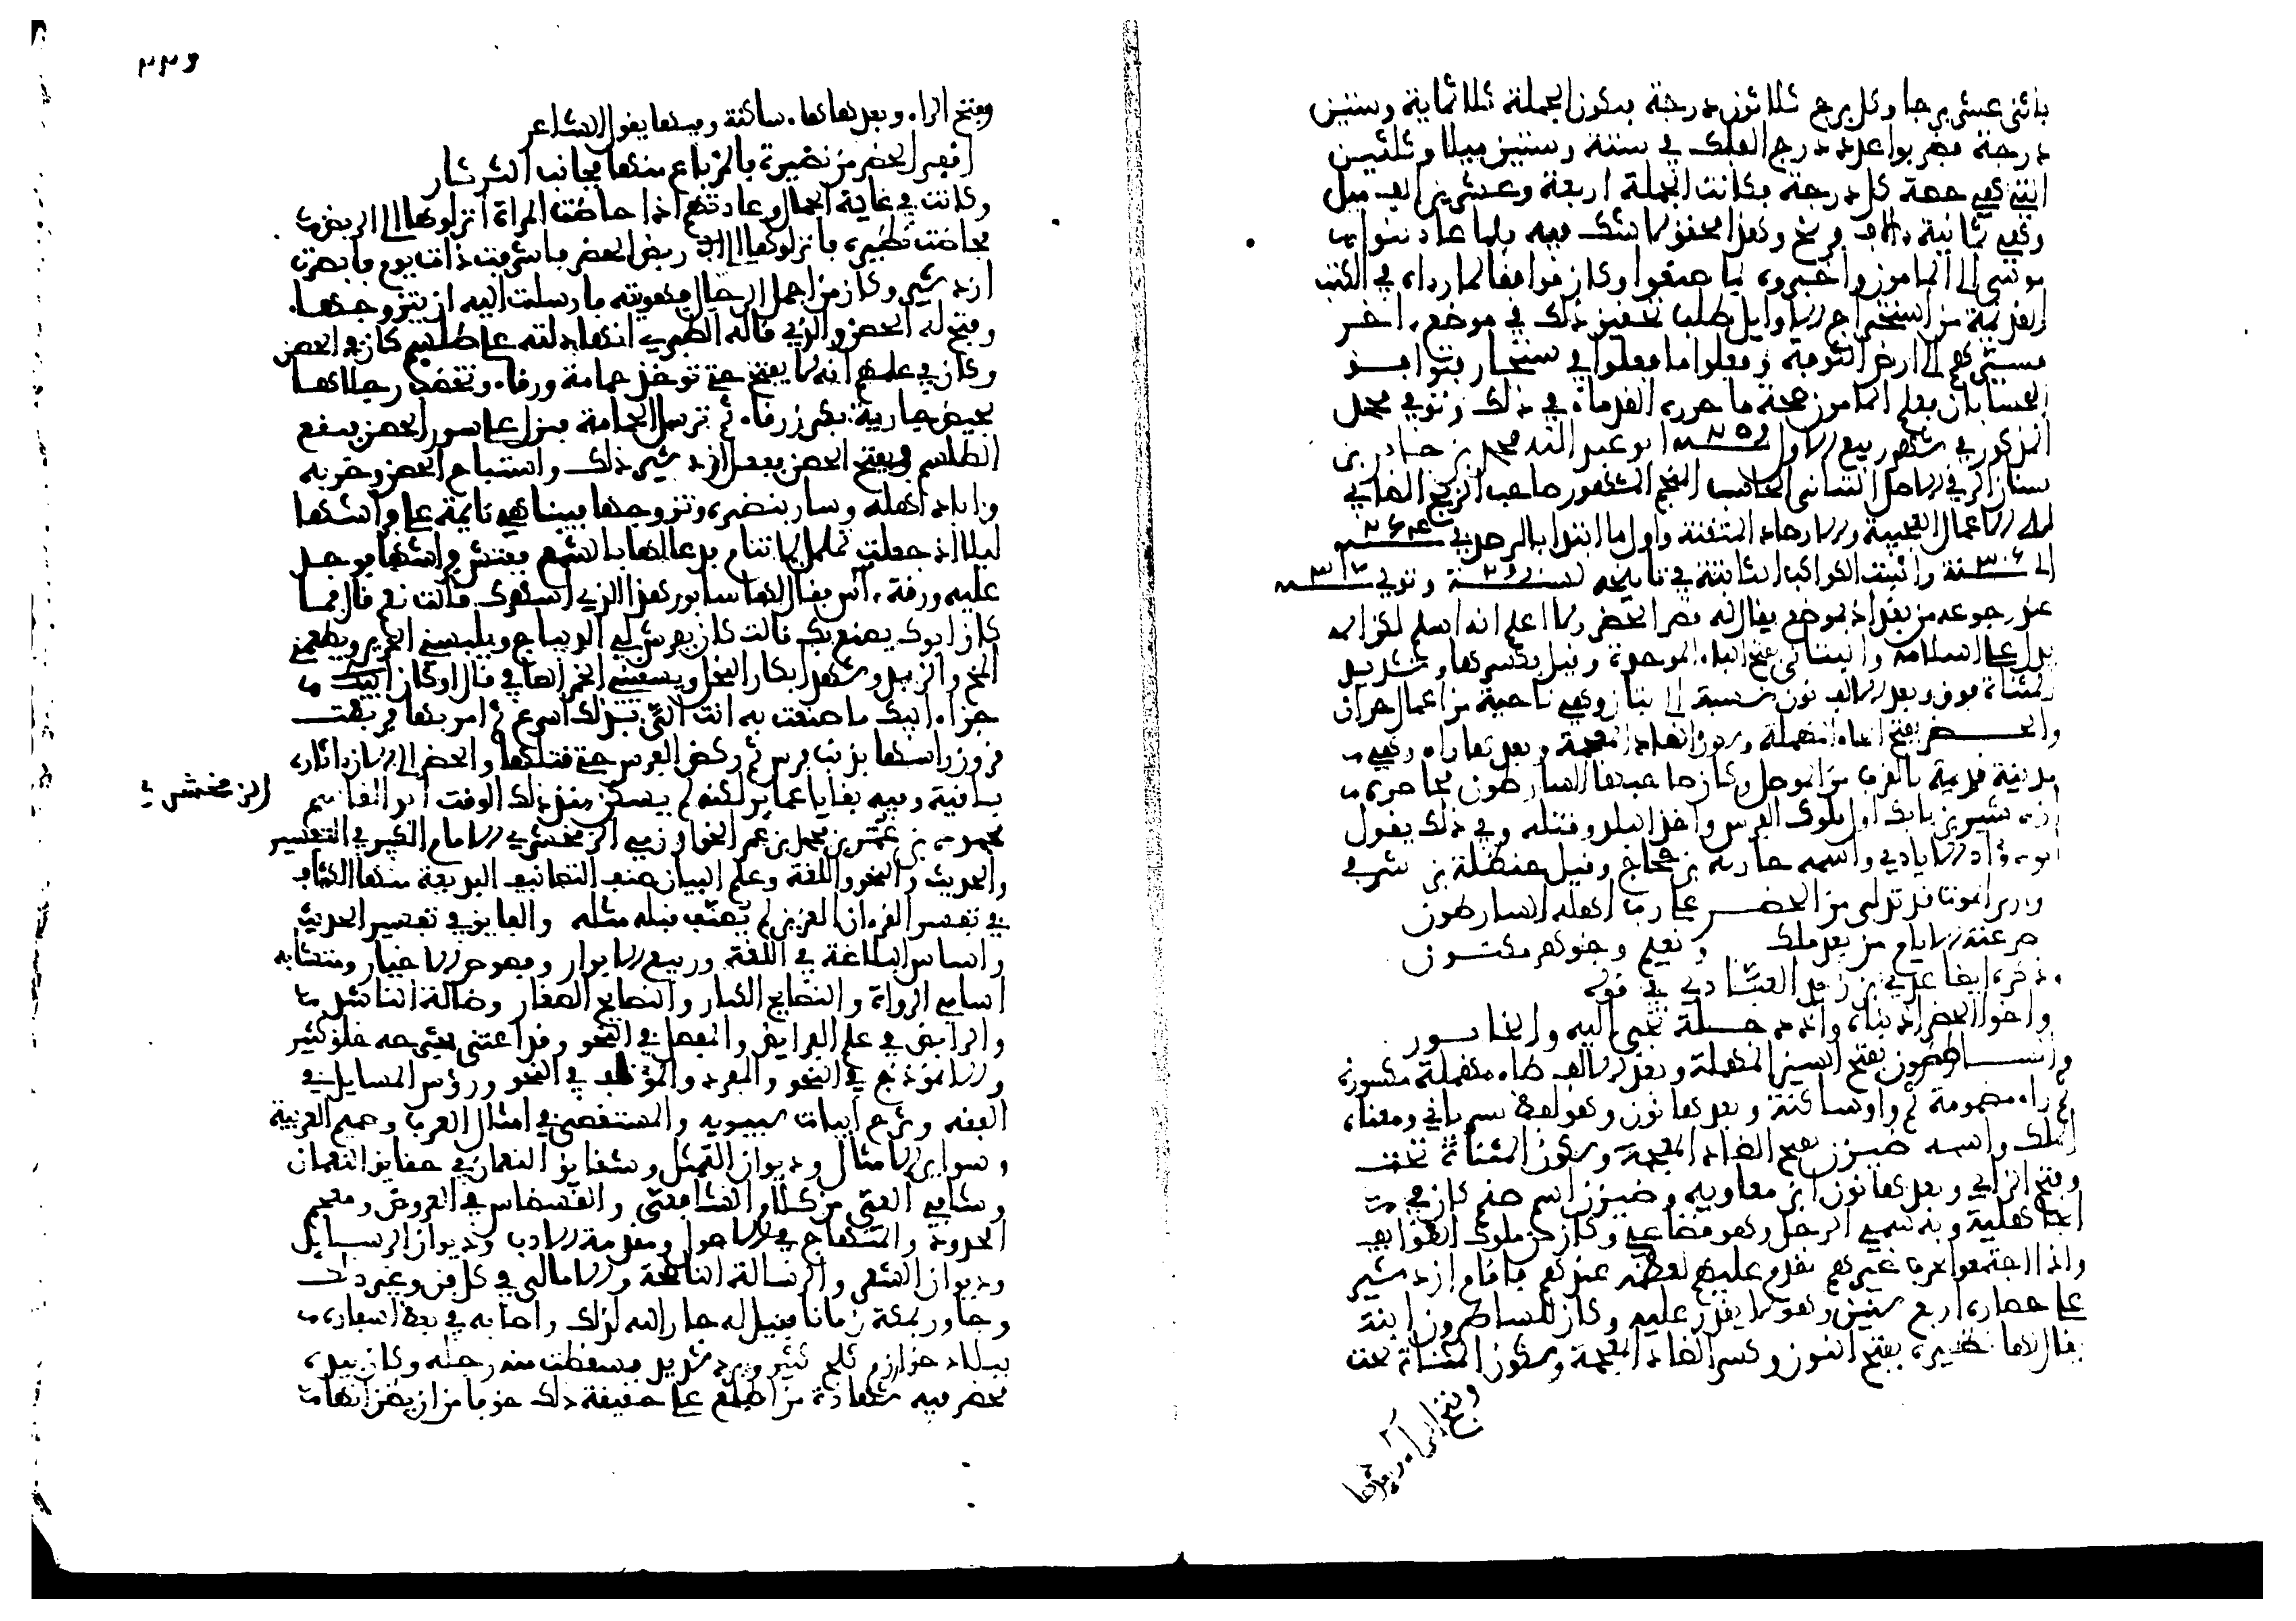 باثنى عشر برجا وكل برج ثلاثون درجة فتكون الجملة ثلاثماية وستين
درجة فضربوا عدد درج الفلك في ستة وستين ميلا وثلثين
التي هي حصة كل درجة فكانت الجملة اربعة وعشرين الف ميل
وهي ثمانية الاف فرسخ وهذا محقق لا شك فيه فلما عاد بنوا
موسى الى المامون واخبروه بما صنعوا وكان موافقا لما رءاه في الكتب
القديمة من استخراج الاوايل طلب تحقيق ذلك في موضع ءاخر
فسيرهم الى ارض الكوفة وفعلوا ما فعلوا في سنجار فتوافق
الحسابان فعلم المامون صحة ما حرره القدماء في ذلك وتوفي محمد
المذكور في شهر ربيع الاول ابو عبد الله محمد بن جابر بن
سنان الرقي الاصل البتاني الحاسب المنجم المشهور صاحب الزيج الصابي
له الاعمال العجيبة والارصاد المتقنة واول ما ابتدا بالرصد في
الى سنة واثبت الكواكب الثابتة في تاريخه لسنة وتوفي
عند رجوعه من بغداد بموضع يقال له قصر الحضر ولا اعلم انه اسلم لكن اسمه
يدل على اسلامه والبتاني بفتح الباء الموحدة وقيل بكسرها وتشديد
المثناة فوق وبعد الالف نون نسبة الى بتان وهي ناحية من اعمال حران
والحضر بفتح الحاء المهملة وسكون الضاد المعجمة وبعدها راء وهي
مدينة قديمة بالقرب من الموصل وكان صاحبها الساطرون فحاصره
ازدشير بن بابك اول ملوك الفرس واخذ البلد وقتله وفي ذلك يقول
ابو دؤاد الايادي واسمه حارثة بن حجاج وقيل حنظلة بن شرقي
وارى الموت قد تدلى من الحضر على رب اهله الساطرون
صرعته الايام من بعد ملك ونعيم وجوهر مكنون
وذكره ايضا عدي بن زيد العبادي في قوله
واخوا الحضر اذ بناه واذ دجلة تجبى اليه والخابور
والساطرون بفتح السين المهملة وبعد الالف طاء مهملة مكسورة
ثم راء مضمومة ثم واو ساكنة وبعدها نون وهو لفظ سرياني ومعناه
الملك واسمه ضيزن بفتح الضاد المعجمة وسكون المثناة تحت
وفتح الزاي وبعدها نون ابن معاوية وضيزن اسم صنم كان في
الجاهلية وبه سمي الرجل وهو قضاعي وكان من ملوك الطوايف
واذا اجتمعوا لحرب غيرهم تقدم عليهم لعظمه عندهم فاقام ازدشير
على حصاره اربع سنين وهو لا يقدر عليه وكان للساطرون ابنة
يقال لها نضيره بفتح النون وكسر الضاد المعجمة وسكون المثناة تحت
وفتح الراء وبعدها
وفتح الراء وبعدها هاء ساكنة وفيها يقول الشاعر
اقفر الحضر من نضيرة فالمرباع منها فجانب الثرثار
وكانت في غاية الجمال وعادتهم اذا حاضت المراة انزلوها الى الربض
فحاضت نضيره فانزلوها الى ربض الحضر فاشرفت ذات يوم فابصرت
ازدشير وكان من اجمل الرجال فهويته فارسلت اليه ان يتزوجها
وتفتح له الحصن والذي قاله الطبري انها دلته على طلسم كان في الحصن
وكان في علمهم انه لا يفتح حتى توخذ حمامة ورقاء وتخضب رجلاها
بحيض جارية بكر زرقاء ثم ترسل الحمامة فتنزل على سور الحصن فيقع
الطلسم ويفتح الحصن ففعل ازدشير ذلك واستباح الحصن وخربه
واباد اهله وسار بنضيره وتزوجها فبينا هي نايمة على فراشها
ليلا اذ جعلت تململ لا تنام فدعا لها بالشمع ففتش فراشها فوجد
عليه ورقة ءاس فقال لها سابور هذا الذي اسهرك قالت نعم قال فما
كان ابوك يصنع بك قالت كان يفرش لي الديباج ويلبسني الحرير ويطعمني
المخ والزبد وشهد ابكار النحل ويسقيني الخمر الصافي قال اوكان
جزاء ابيك ما صنعت به انت الي بذلك اسرع ثم امر بها فربطت
قرون راسها بذنب فرس ثم ركض الفرس حتى قتلها والحضر الى الان اثاره
باقية وفيه بقايا عماير لكنه لم يسكن منذ ذلك الوقت ابو القاسم
الزمخشري
محمود بن عمر بن محمد بن عمر الخوارزمي الزمخشري الامام الكبير في التفسير
والحديث والنحو واللغة وعلم البيان صنف التصانيف البديعة منها الكشاف
في تفسير القرءان العزيز لم يصنف قبله مثله والفايق في تفسير الحديث
واساس البلاغة في اللغة وربيع الابرار وفصوص الاخبار ومتشابه
اسامي الرواة والنصايح الكبار والنصايح الصغار وضالة الناشد
والرايض في علم الفرايض والمفصل في النحو وقد اعتنى بشرحه خلق كثير
والانموذج في النحو والمفرد والمؤلف في النحو ورؤس المسايل في
الفقه وشرح ابيات سيبويه والمستقصى في امثال العرب وصميم العربية
وسواير الامثال وديوان التمثل وشقايق النعمان في حقايق النعمان
وشافي العي من كلام الشافعي والقسطاس في العروض ومعجم
الحدود والمنهاج في الاصول ومقدمة الادب وديوان الرسايل
وديوان الشعر والرسالة الناصحة والامالي في كل فن وغير ذلك
وجاور بمكة زمانا فقيل له جار الله لذلك واصابه في بعض اسفاره
ببلاد خوارزم ثلج كثير وبرد شديد فسقطت منه رجله وكان بيده
محضر فيه شهادة من اطلع على حقيقة ذلك خوفا من ان يظن انها